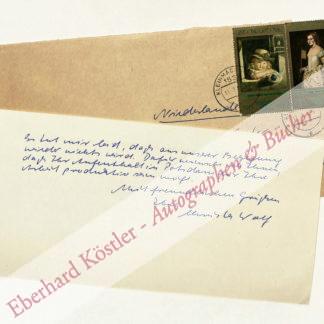 KLEINMAC
Niederlande
Es tut mir leid, daß aus unserer Begegnung
wieder nichts wird. Dafür wünsche ich Ihnen
daß Ihr Aufenthalt in Potsdam für Ihre
Arbeit produktiv sein möge.
Mit freundlichen Grüßen
Ihre
Christa Wolf
Eberhard Köstler - Autographen & Bücher